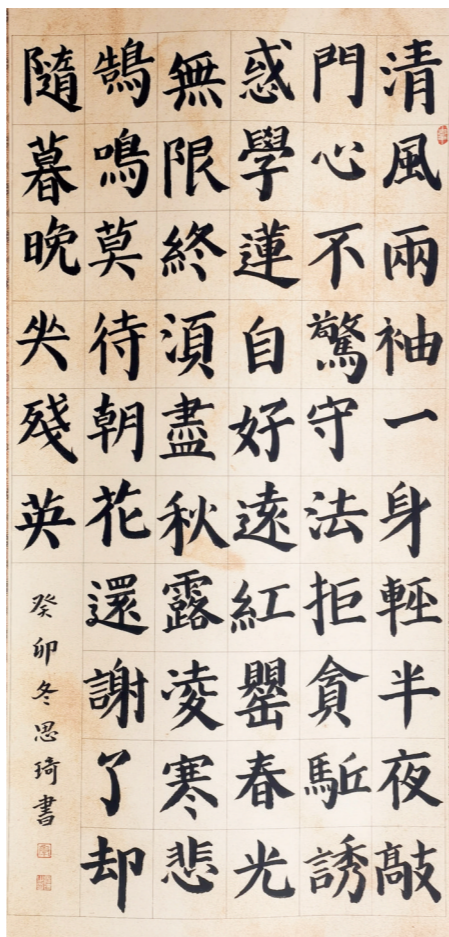 清風兩袖一身輕半夜敲
門心不驚守法拒貪駈誘
惑學蓮自好遠紅罌春光
無限終湏盡秋露凌寒悲
鵠鳴莫待朝花還謝了却
隨暮晚失殘英
癸卯冬思琦書